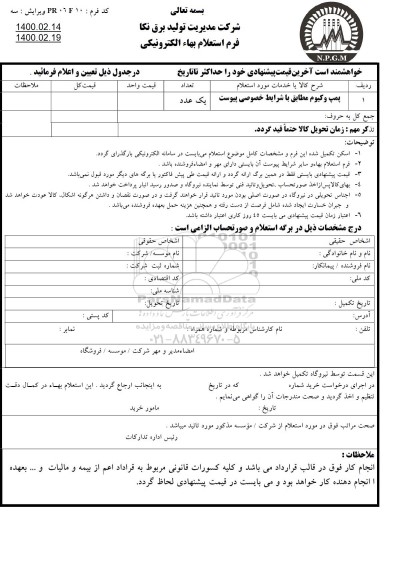 بسمه تعالی
کد فرم : PR ۰۶ F ۱۰ ویرایش : سه
1400.02.14
1400.02.19
شرکت مدیریت تولید برق نکا
فرم استعلام بهاء الکترونیکی
N.P.G.M
خواهشمند است آخرین قیمت پیشنهادی خود را حداکثر تاتاریخ درجدول ذیل تعیین و اعلام فرمائید .
ردیف شرح کالا یا خدمات مورد استعلام تعداد قیمت واحد قیمت کل ملاحظات
۱ پمپ وکیوم مطابق با شرایط خصوصی پیوست یک عدد
جمع کل به حروف:
تذکر مهم : زمان تحویل کالا حتماً قید گردد.
توضیحات:
۱- اسکن تکمیل شده این فرم و مشخصات کامل موضوع استعلام می‌بایست در سامانه الکترونیکی بارگذرای گردد.
۲- فرم استعلام بهاءو سایر شرایط پیوست آن بایستی دارای مهر و امضاءفروشنده باشد .
۳- قیمت پیشنهادی بایستی فقط در همین برگ ارائه گردد و ارائه قیمت طی پیش فاکتور یا برگه های دیگر مورد قبول نمی‌باشد.
۴- بهای‌کالاپس‌ازاخذ صورتحساب ،تحویل‌وتائید فنی توسط نماینده نیروگاه و صدور رسید انبار پرداخت خواهد شد .
۵- اجناس تحویلی در نیروگاه در صورت اصلی بودن مورد تائید قرار خواهند گرفت و در صورت نقصان و داشتن هرگونه اشکال، کالا عودت خواهد شد
و جبران خسارت ایجاد شده شامل فرصت از دست رفته و همچنین هزینه حمل بعهده فروشنده می‌باشد .
۶- اعتبار زمان قیمت پیشنهادی می بایست ۴۵ روز کاری اعتبار داشته باشد
درج مشخصات ذیل در برگه استعلام و صورتحساب الزامی است :
اشخاص حقیقی اشخاص حقوقی:
نام و نام خانوادگی : نام مؤسسه/ شرکت :
نام فروشنده / پیمانکار: شماره ثبت شرکت :
کد ملی: کد اقتصادی :
شناسه ملی:
تاریخ تکمیل : تاریخ تحویل:
آدرس: کد پستی :
تلفن : نام کارشناس مربوطه و شماره همراه نمابر :
۰۲۱-۸۸۳۴۹۶۷۰-۵
امضاءمدیر و مهر شرکت / موسسه / فروشگاه
این قسمت توسط نیروگاه تکمیل خواهد شد .
در اجرای درخواست خرید شماره که در تاریخ به اینجانب ارجاع گردید . این استعلام بهـاء در کمـال دقـت
تنظیم و اخذ گردید و صحت مندرجات آن را گواهی می‌نمایم .
تاریخ : مامور خرید
صحت مراتب فوق در مورد استعلام از شرکت / مؤسسه مذکور مورد تائید میباشد .
رئیس اداره تدارکات
ملاحظات :
انجام کار فوق در قالب قرارداد می باشد و کلیه کسورات قانونی مربوط به قراداد اعم از بیمه و مالیات و ... بعهده
ا انجام دهنده کار خواهد بود و می بایست در قیمت پیشنهادی لحاظ گردد.